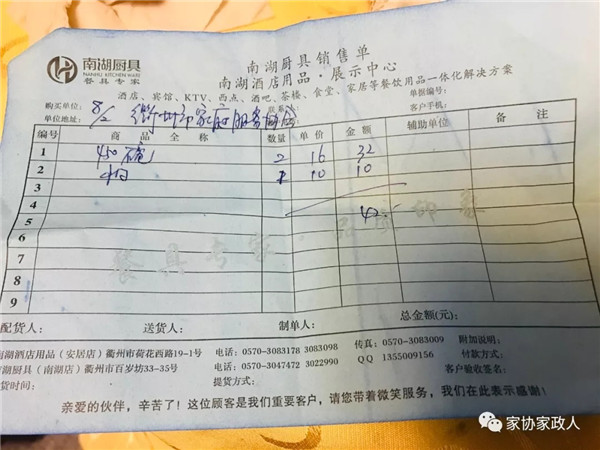 南湖厨具
NANHU KITCHEN WARE
餐具专家
南湖厨具销售单
南湖酒店用品·展示中心
酒店、宾馆、KTV、西点、酒吧、茶楼、食堂、家居等餐饮用品一体化解决方案
购买单位： 单据编号：
单位地址： 8/2 衢州市家庭服务 客户手机：
编号 商品全称 数量 单价 金额 辅助单位 备注
1 450 碗 2 16 32
2 1 10 10
3
4
5 42
6
7
8
9
餐具专家·品质印象
配货人： 送货人： 制单人： 总金额(元)：
南湖酒店用品（安居店）衢州市荷花西路19-1号 电话：0570-3083178 3083098 传真：0570-3083009 附加说明：
湖厨具（南湖店）衢州市百岁坊33-35号 电话：0570-3047472 3022990 QQ 1355009156 付款方式：
货时间： 提货方式： 客户验收签名：
亲爱的伙伴，辛苦了！这位顾客是我们重要客户，请您带着微笑服务，我们在此表示感谢！
家协家政人